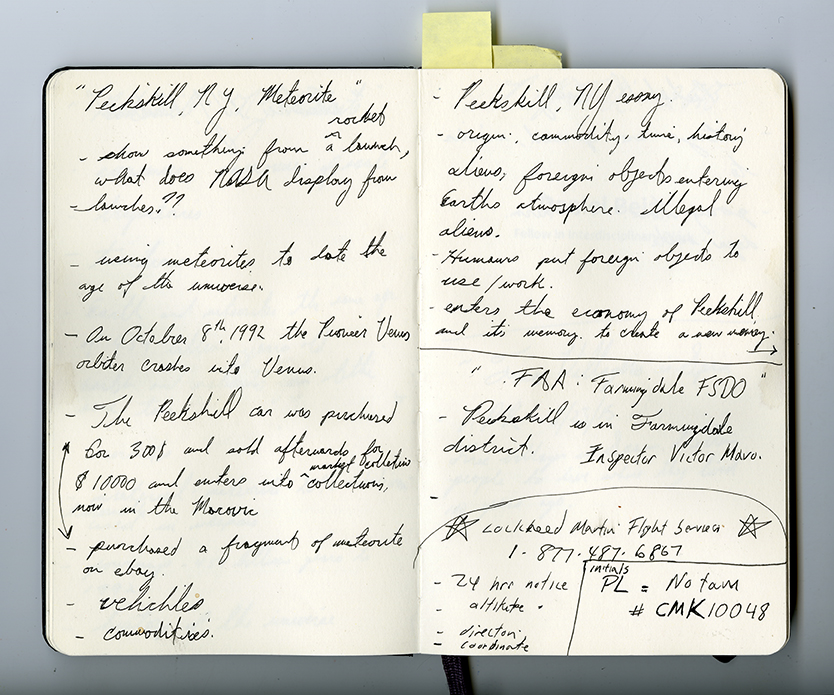 "Peekskill, NY, Meteorite"
rocket
- show something from a ^ launch,
what does NASA display from
- launches??
- using meteorites to date the
age of the universe.
- On October 8th, 1992 the Pioneer Venus
orbiter crashes into Venus.
- The Peekskill car was purchased
for 300$ and sold afterwards for
market collection
$10000 and enters into ^ collections,
now in the
- purchased a fragment of meteorite
on ebay.
- vehichles
- commodities.
- Peekskill, NY essay.
- origin, commodity, time, history
aliens, foreign objects entering
Earths atmosphere. illegal
aliens.
- Humans put foreign objects to
use/work.
- enters the economy of Peekskill
and its memory. to create a new
"FAA: Farmingdale FSDO"
- Peekskill is in Farmingdale
district. Inspector Victor
-
☆ Lockheed Martin Flight Services ☆
1-877-487-6867
- 24 hr notice
- altitute
- direction
- coordinate
initials
PL = Notam
# CMK10048